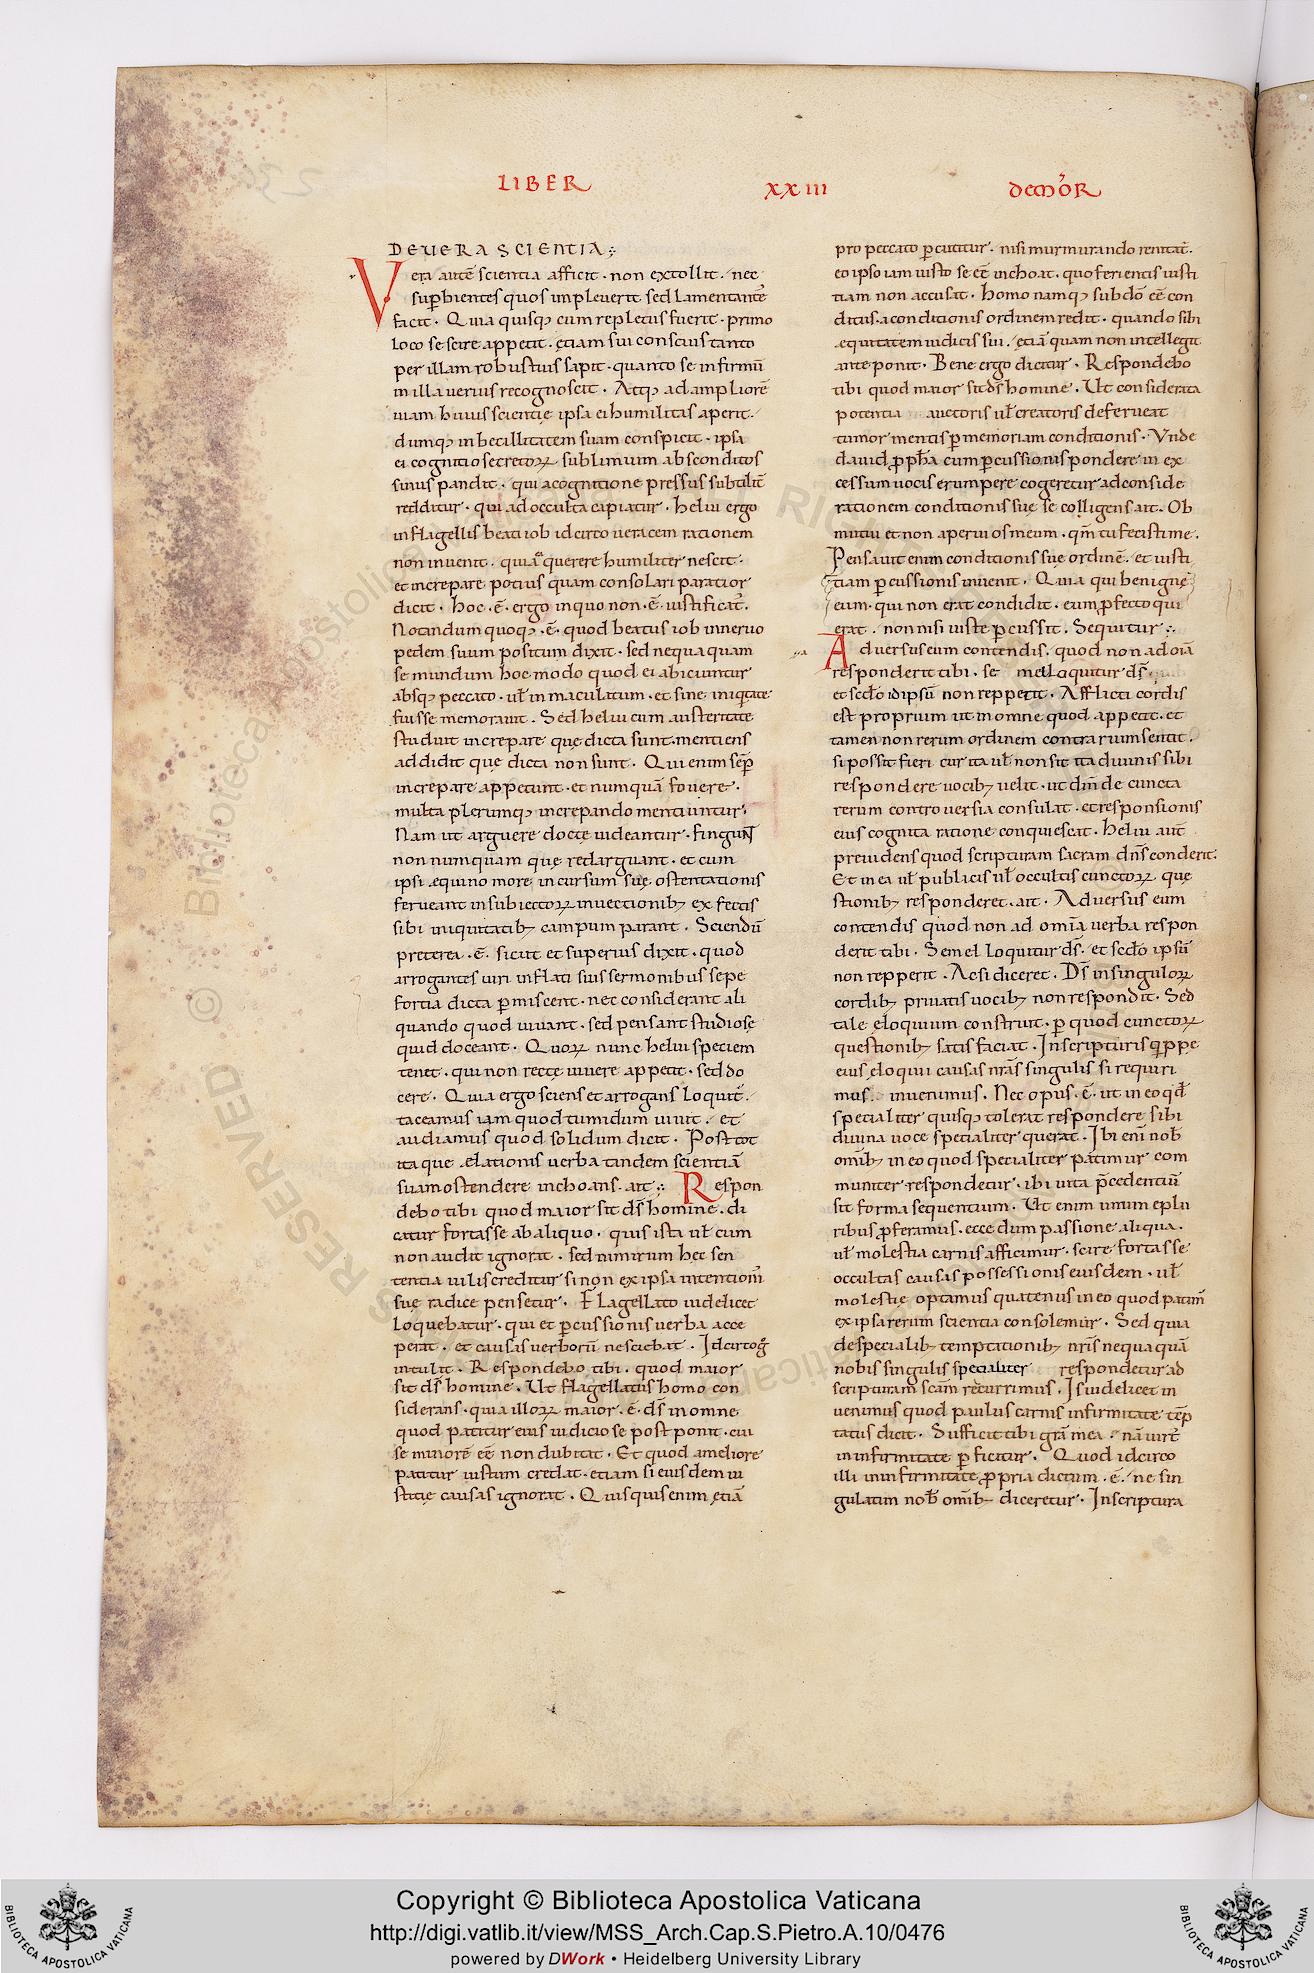 LIBER XXIII DEMOR
DEUERA SCIENTIA
Vera autē scientia afficit · non extollit · nec
supbientes quos impleuerit sed lamentantes
facit · Quia quisq; cum repletus fuerit · primo
loco se scire appetit · etiam sui conscius tanto
per illam robustius sapit · quanto se infirmū
in illa uerius recognoscit · Atq; ad ampliorē
uiam huius scientię ipsa ei humilitas aperit ·
dumq; inbecillitatem suam conspicit · ipsa
ei cognitio secretoꝝ sublimium absconditos
sinus pandit · qui a cognitione pressus subtilit
redditur · qui ad occulta capiatur · heliu ergo
in flagellis beati iob idcirco ueracem rationem
non inuenit · quia querere humiliter nescit ·
et increpare potius quam consolari paratior
dicit · hoc · ē · ergo in quo non · ē · iustificat̄ ·
Notandum quoq; · ē · quod beatus iob in neruo
pedem suum positum dixit · sed nequaquam
se mundum hoc modo quod ei abiciuntur
absq; peccato · ul̄ inmaculatum · et sine iniqtate
fuisse memorauit · Sed heliu cum austeritate
studuit increpare que dicta sunt · mentiens
addidit quę dicta non sunt · Qui enim sēp
increpare appetunt · et numquā fouere ·
multa plerumq; increpando mentiuntur ·
Nam ut arguere docte uideantur · fingunt
non numquam quę redarguant · et cum
ipsi equino more in cursum suę ostentationis
ferueant in subiectoꝝ inuectionib; ex fectis
sibi iniquitatib; campum parant · Sciendū
preterea · ē · sicut et superius dixit · quod
arrogantes uiri inflati suis sermonibus sepe
fortia dicta pmiscent · nec considerant ali
quando quod uiuant · sed pensant studiosę
quid doceant · Quoꝝ nunc heliu speciem
tenet · qui non recte uiuere appetit · sed do
cere · Quia ergo sciens et arrogans loquit̄ ·
taceamus iam quod tumidum uiuit · et
audiamus quod solidum dicit · Post tot
itaque elationis uerba tandem scientiā
suam ostendere inchoans · ait · Respon
debo tibi quod maior sit ds̄ homine · di
catur fortasse ab aliquo · quis ista ul̄ cum
non audit ignorat · sed nimirum hec sen
tentia uilis creditur si non ex ipsa intentionis
sue radice pensetur · Flagellato uidelicet
loquebatur · qui et pcussionis uerba acce
perat · et causas uerborū nesciebat · Idcirco
intulit · Respondebo tibi · quod maior
sit ds̄ homine · Ut flagellatus homo con
siderans · quia illoꝝ maior · ē · ds̄ in omne
quod patitur eius iudicio se postponit · cui
se minorē eē non dubitat · Et quod a meliore
patitur iustum credat · etiam si eiusdem iu
stitię causas ignorat · Quisquis enim etiā
pro peccato pcutitur · nisi murmurando renitat̄ ·
eo ipso iam iusto se eē inchoat · quo ferientis iusti
tiam non accusat · homo namq; sub dō eē con
ditus · a conditionis ordinem redit · quando sibi
equitatem iudicis sui · etiā quam non intellegit
anteponit · Bene ergo dicitur · Respondebo
tibi quod maior sit ds̄ homine · Ut considerata
potentia auctoris ul̄ creatoris deferueat
tumor mentis p memoriam conditionis · Unde
dauid pph̄a cum pcussionis pondere in ex
cessum uocis erumpere cogeretur ad conside
rationem conditionis suę se colligens ait · Ob
mutui et non aperui os meum · qm̄ tu fecisti me ·
Pensauit enim conditionis sue ordinē · et iusti
tiam pcussionis inuenit · Quia qui benigne
eum · qui non erat condidit · eum pfecto qui
erat · non nisi iuste pcussit · Sequitur ·
Aduersus eum contendis · quod non ad oīa
responderit tibi · semel loquitur ds̄ ·
et scdō idipsū non reppetit · Afflicti cordis
est proprium ut in omne quod appetit · et
tamen non rerum ordinem contrarium sentit ·
si possit fieri cur ita ul̄ non sit ita diuinis sibi
respondere uocib; uelit · ut dn̄m de cuncta
rerum controuersia consulat · et responsionis
eius cognita ratione conquiescat · heliu aut̄
preuidens quod scripturam sacram dn̄s conderet ·
Et in ea ul̄ publicis ul̄ occultis cunctoꝝ quę
stionib; responderet · ait · Aduersus eum
contendis quod non ad omīa uerba respon
derit tibi · Semel loquitur ds̄ · et scdō ipsū
non repperit · Acsi diceret · Ds̄ in singuloꝝ
cordib; priuatis uocib; non respondit · Sed
tale eloquium construit · p quod cunctoꝝ
questionib; satisfaciat · In scripturis q̄ppe
eius eloquii causas nr̄as singulis si requiri
mus · inuenimus · Nec opus · ē · ut in eo qd̄
specialiter quisq; tolerat respondere sibi
diuina uoce specialiter querat · Ibi eni nob̄
omīb; in eo quod specialiter patimur com
muniter respondetur · ibi uita pcedentiū
sit forma sequentium · Ut enim unum e plu
ribus pferamus · ecce dum passione aliqua ·
ul̄ molestia carnis afficimur · scire fortasse
occultas causas possessionis eiusdem · ul̄
molestie optamus quatenus in eo quod patimur
ex ipsa rerum scientia consolemur · Sed quia
de specialib; temptationib; nr̄is nequaquā
nobis singulis specialiter respondetur ad
scripturam scām recurrimus · Isi uidelicet in
uenimus quod paulus carnis infirmitate tēp
tatus dicit · Sufficit tibi grā mea · nā uirt̄
in infirmitate pficitur · Quod idcirco
illi in infirmitate ppria dictum · ē · ne sin
gulatim nob̄ omīb; diceretur · In scriptura
Copyright © Biblioteca Apostolica Vaticana
http://digi.vatlib.it/view/MSS_Arch.Cap.S.Pietro.A.10/0476
powered by DWork • Heidelberg University Library
BIBLIOTECA APOSTOLICA VATICANA
BIBLIOTECA APOSTOLICA VATICANA